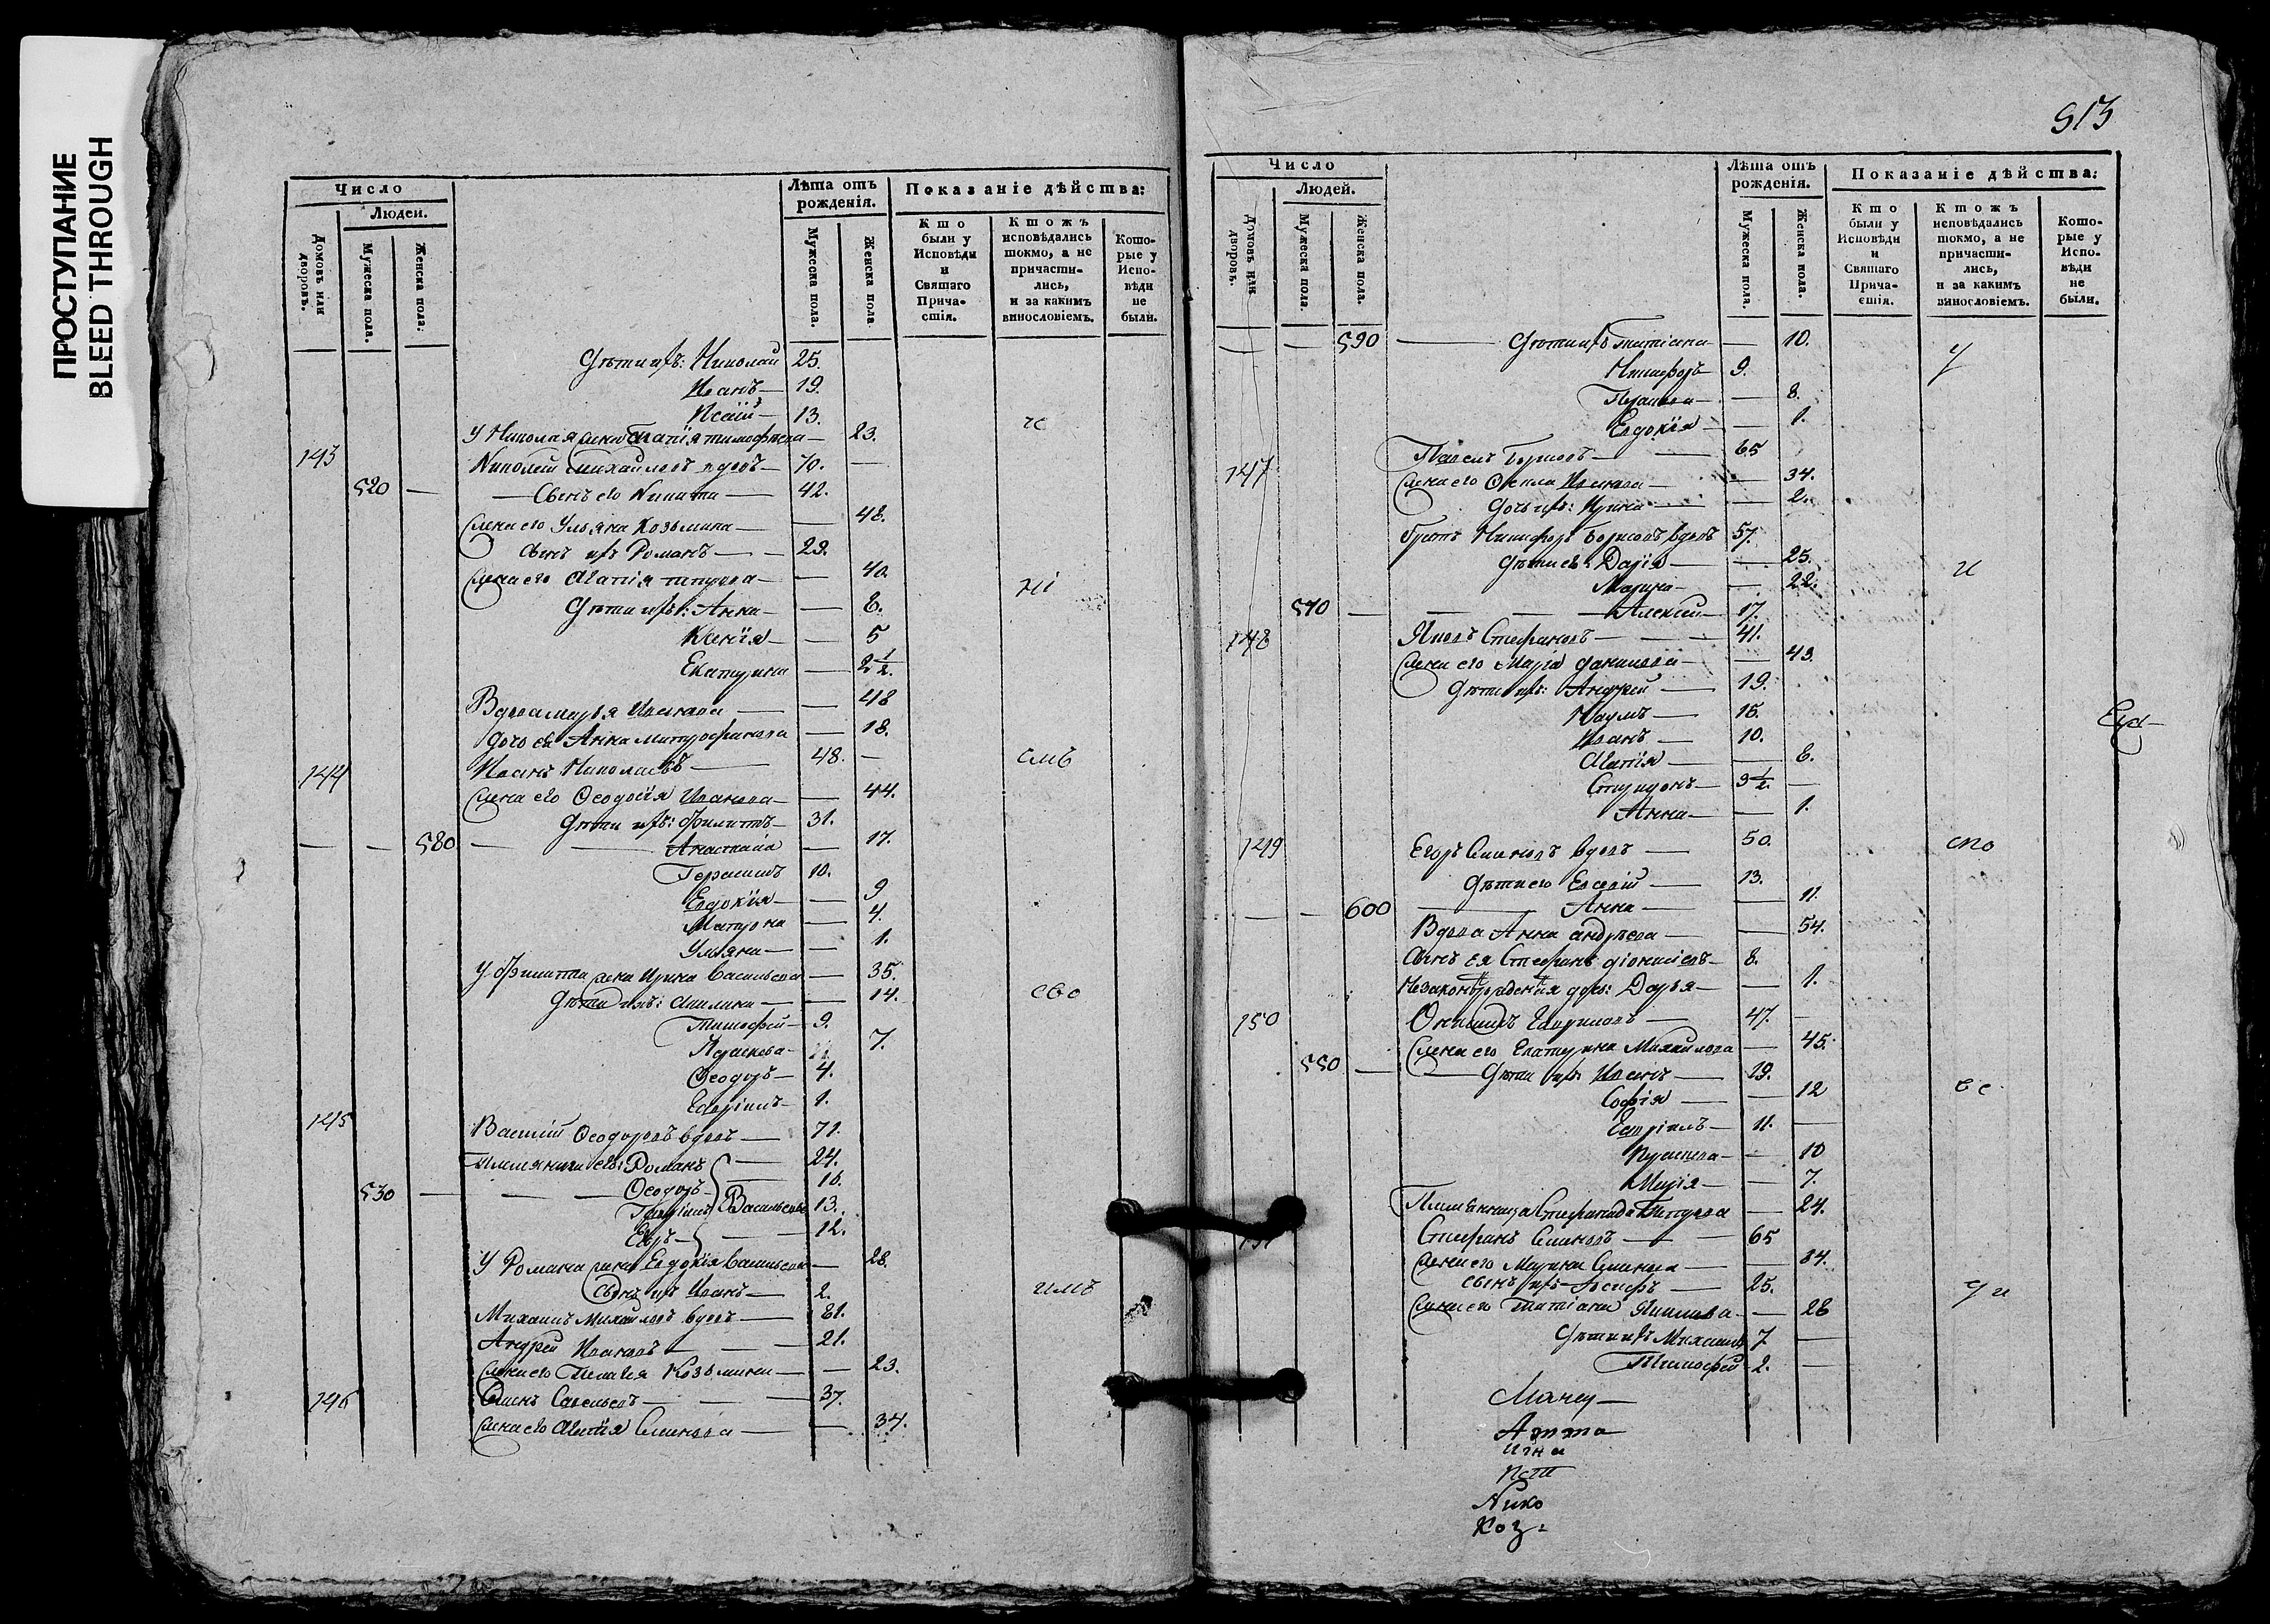 ПРОСТУПАНИЕ
BLEED THROUGH
Число
Людей.
Домовъ или дворовъ.
Мужеска пола.
Женска пола.
Лѣта отъ рожденія.
Мужеска пола.
Женска пола.
Показаніе дѣйства:
Кто были у Исповѣди и Святаго Прича-стія.
Ктожъ исповѣдались токмо, а не причасти-лись, и за какимъ винословіемъ.
Кото-рые у Испо-вѣди не были.
Дѣти ихъ: Николай 25.
Иванъ 19.
Исаій 13.
У Николая жена Агапія Тимофѣева 23.
чс
143 вдовъ 70.
520 Сынъ его Никита 42.
Жена его Ульяна Козьмина 48.
Сынъ ихъ Романъ 29.
Жена его Агапія 40.
Дѣти ихъ: Анна 8.
Ксенія 5
Екатерина 2 1/2.
Вдова Марья Иванова 48
Дочь ея Анна Митрофанова 18.
144 Иванъ Николаевъ 48.
Жена его Ѳеодосія Иванова 44.
Дѣти ихъ: Филиппъ 31.
580 Анастасія 17.
Герасимъ 10.
Евдокія 9
Матрона 4.
Ульяна 1.
У Филиппа жена Ирина Васильева 35.
Дѣти ихъ: Акилина 14.
Тимофей 9.
Параскева 7.
Ѳеодоръ 4.
Гавріилъ 1.
145 Василій Ѳеодоровъ вдовъ 71.
Племянники его: Романъ 24.
530 Ѳеодоръ 16.
Васильевы 13.
Егоръ 12.
У Романа жена Евдокія Васильева 28.
Сынъ ихъ Иванъ 2.
Михаилъ Михайловъ вдовъ 61.
Андрей Ивановъ 21.
Жена его Пелагія Козьмина 23.
146 Семенъ Савельевъ 37.
Жена его Агапія Семенова 34.
513
Число
Людей.
Домовъ или дворовъ.
Мужеска пола.
Женска пола.
Лѣта отъ рожденія.
Мужеска пола.
Женска пола.
Показаніе дѣйства:
Кто были у Исповѣди и Святаго Прича-стія.
Ктожъ исповѣдались токмо, а не причасти-лись, и за какимъ винословіемъ.
Кото-рые у Испо-вѣди не были.
590 Дѣти ихъ Татіана 10.
Никифоръ 9.
8.
Евдокія 1.
147 Павелъ Борисовъ 65
Жена его Ѳекла Иванова 34.
Дочь ихъ: Ирина 2.
Братъ Никифоръ Борисовъ вдовъ 57.
Дѣти его: Дарія 25.
Марина 22.
540 Алексей 17.
148 Яковъ Стефановъ 41.
Жена его Марія Данилова 43.
Дѣти ихъ: Андрей 19.
Наумъ 15.
Иванъ 10.
Агапія 6.
Спиридонъ 3 1/2.
Анна 1.
149 Егоръ Семеновъ вдовъ 50.
Дѣти его Евсевій 13.
600 Анна 11.
Вдова Анна Андреева 54.
Сынъ ея Стефанъ Діонисіевъ 8.
Незаконнорожденная дочь: Дарья 1.
150 Гавриловъ 47.
Жена его Екатерина Михайлова 45.
550 Дѣти ихъ Иванъ 19.
Софія 12
Гавріилъ 11.
Параскева 10
Марія 7.
Племянница Стефанида 24.
151 Стефанъ Семеновъ 65
Жена его Марина Семенова 64.
Сынъ ихъ Іосифъ 25.
Жена его Татіана 26
Дѣти ихъ Михаилъ 7
Тимофей 2.
Нико
Коз=